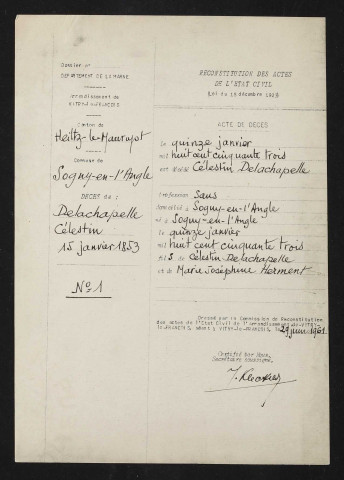 Dossier n°
DEPARTEMENT DE LA MARNE
Arrondissement de
VITRY-le-FRANCOIS
Canton de
Heiltz-le-Maurupt
Commune de
Sogny-en-l'Angle
DECES de :
Delachapelle
Célestin
15 janvier 1853
N° 1
RECONSTITUTION DES ACTES
DE L'ETAT CIVIL
Loi du 15 décembre 1923
ACTE DE DECES
Le quinze janvier
mil huit cent cinquante trois
est décédé Célestin Delachapelle
profession Sans
domicilié à Sogny-en-l'Angle
né à Sogny-en-l'Angle
le quinze janvier
mil huit cent cinquante trois
fils de Célestin Delachapelle
et de Marie Joséphine Herment
Dressé par la Commission de Reconstitution
des actes de l'Etat Civil de l'arrondissement de VITRY-
le-FRANCOIS, séant à VITRY-le-FRANCOIS, le 29 juin 1961
Certifié par Nous,
Secrétaire soussigné,